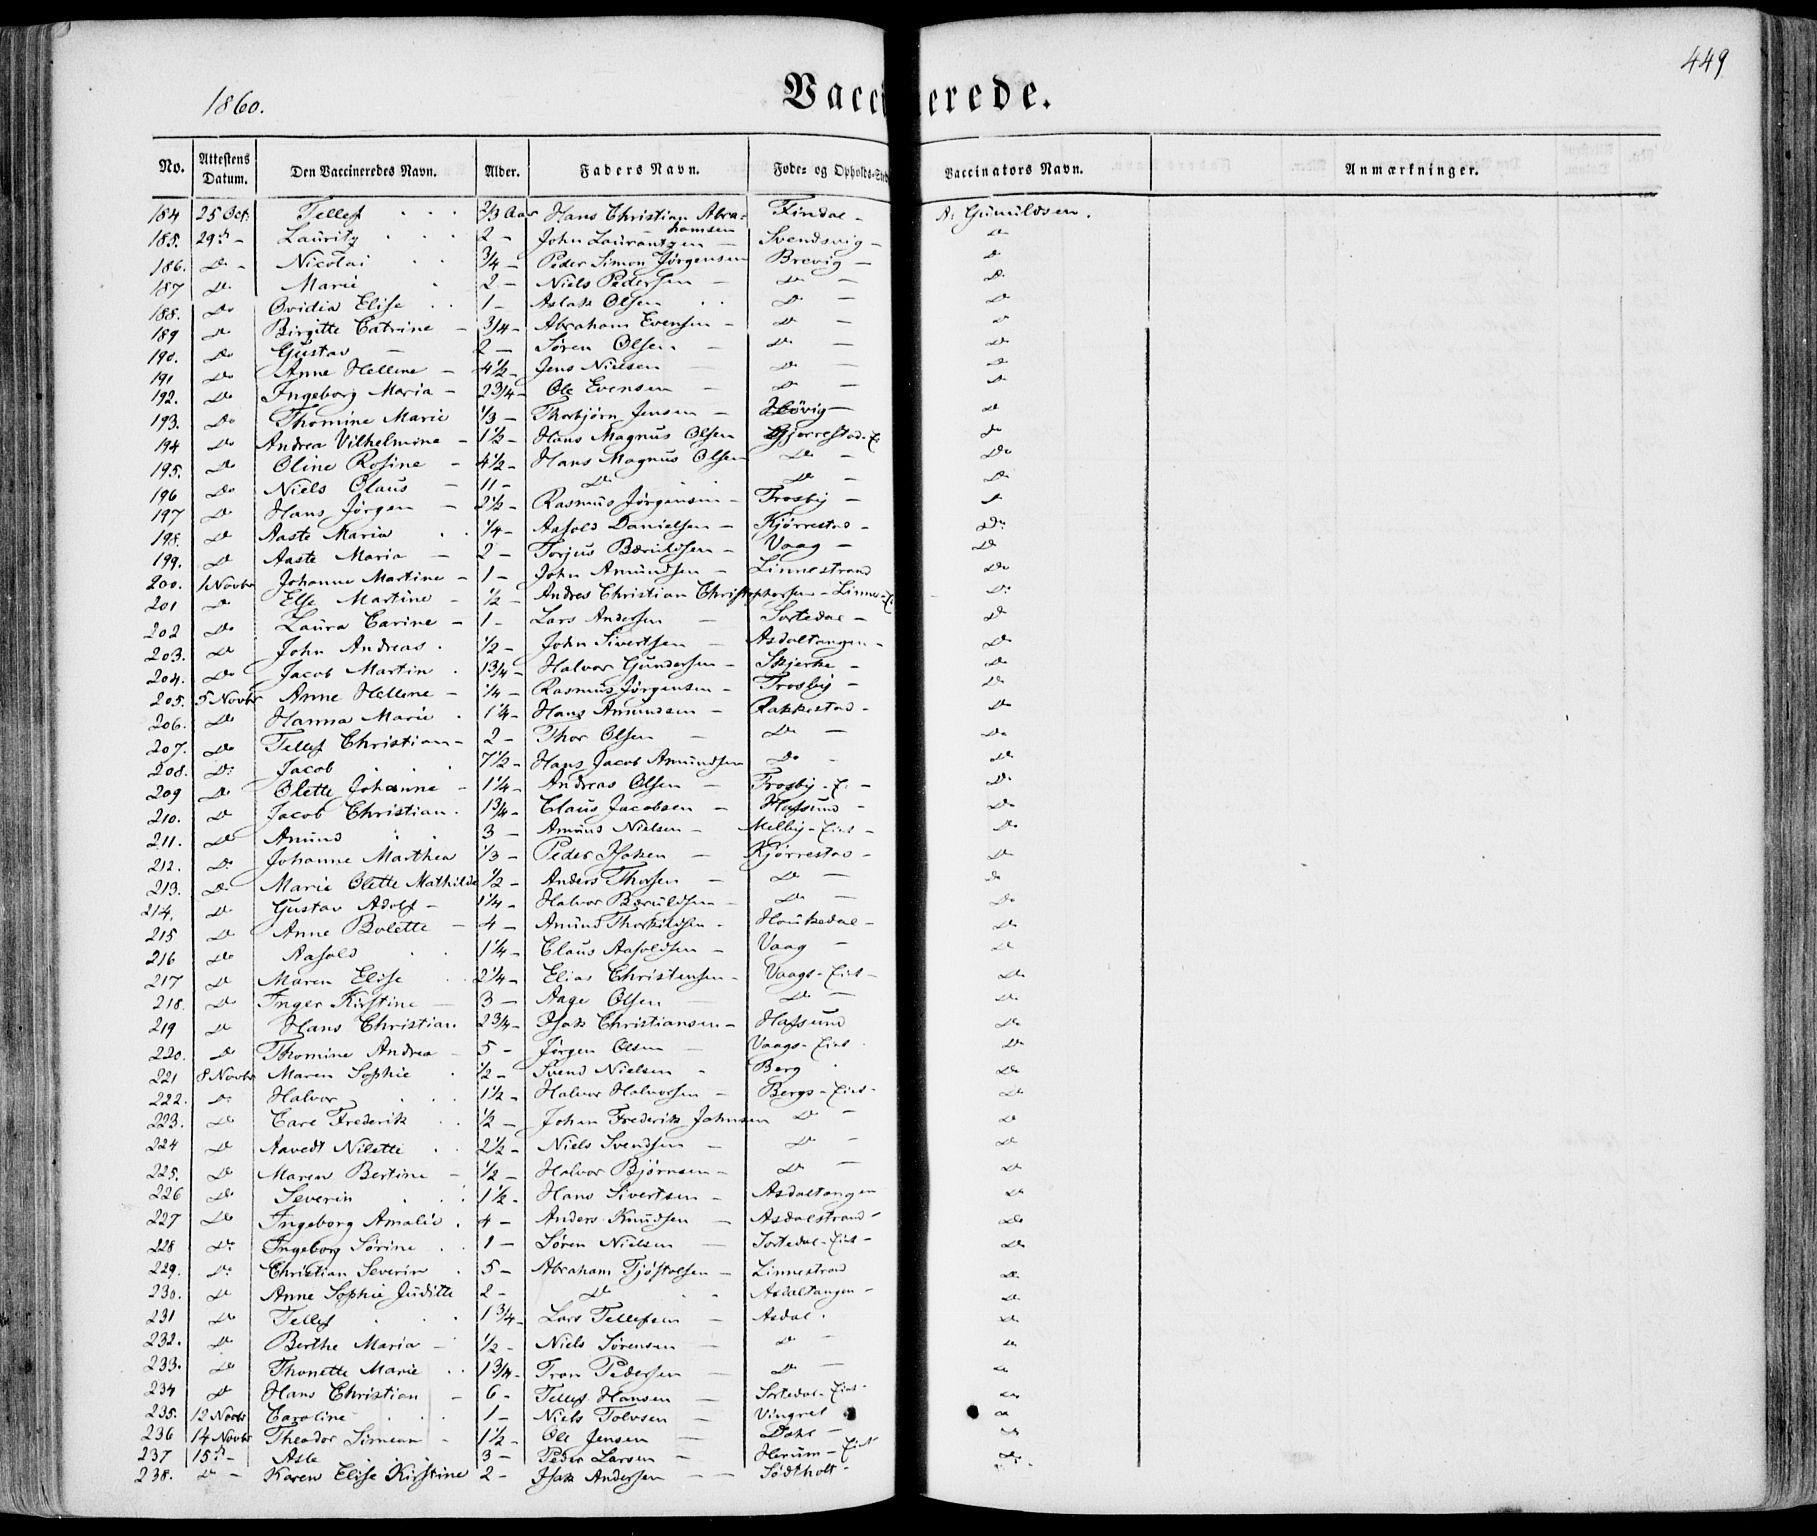 1860.
Vaccinerede.
449
No. Attestens Datum. Den Vaccineredes Navn. Alder. Faders Navn. Føde- og Opholds-Sted Vaccinators Navn. Anmærkninger.
184 25 Oct. Tellef 2/3 Aar Hans Christian Abrahamsen Findal A. Gunuldsen.
185. 29de Lauritz 2 John Laurantzen Svendsvig Do
186. Do Nicolai 3/4 Peder Simon Jørgensen Brevig Do
187 Do Marie 2 Niels Pedersen Do Do
188. Do Ovidia Elise 1 Aslak Olsen Do Do
189 Do Birgitte Catrine 3/4 Abraham Evensen Do Do
190. Do Gustav 2 Søren Olsen Do Do
191 Do Anne Hellene 4 1/2 Jens Nielsen Do Do
192. Do Ingeborg Maria 2 3/4 Ole Evensen Do Do
193. Do Thomine Marie 1/3 Thorbjørn Jensen Høvig Do
194 Do Andrea Vilhelmine 1 1/2 Hans Magnus Olsen Gjerrestad-E Do
195. Do Oline Rosine 4 1/2 Hans Magnus Olsen Do Do
196 Do Niels Olaus 11 Do Do Do
197 Do Hans Jørgen 2 1/2 Rasmus Jørgensen Trosby Do
198. Do Aaste Maria 1/4 Aasold Danielsen Kjørrestad Do
199. Do Aaste Maria 2 Torjus Bæruldsen Vaag Do
200. 1 Novbr Johanne Martine 1 John Amundsen Linnestrand Do
201 Do Else Martine 1/2 Andres Christian Christophersen Linnes-E. Do
202 Do Laura Carine 1 Lars Andersen Sortedal Do
203. Do John Andreas 1/2 John Sivertsen Asdaltangen Do
204. Do Jacob Martin 1 3/4 Halvor Gundersen Skjerke Do
205. 5 Novbr Anne Hellene 1/4 Rasmus Jørgensen Trosby Do
206. Do Hanna Marie 1 1/4 Hans Amundsen Rakkestad Do
207. Do Tellef Christian 2 Thor Olsen Do Do
208. Do Jacob 7 1/2 Hans Jacob Amundsen Do Do
209 Do Olette Johanne 1 1/4 Andreas Olsen Trosby-E. Do
210. Do Jacob Christian 1 3/4 Claus Jacobsen Hafsund Do
211. Do Amund 3 Amund Nielsen Melby-Eiet Do
212. Do Johanne Marthea 1/3 Peder Isaksen Kjørrestad Do
213. Do Marie Olette Mathilde 1/2 Anders Thorsen Do Do
214. Do Gustav Adolf 1 1/4 Halvor Bæruldsen Do Do
215 Do Anne Bolette 4 Amund Thorkildsen Houkedal Do
216 Do Aasold 1 1/4 Claus Aasoldsen Vaag Do
217 Do Maren Elise 2 1/4 Elias Christensen Vaags-Eiet Do
218. Do Inger Kirstine 3 Aage Olsen Do Do
219 Do Hans Christian 2 3/4 Isak Christiansen Hafsund Do
220. Do Thomine Andrea 5 Jørgen Olsen Vaags-Eiet Do
221 8 Novbr Maren Sophie 1/2 Svend Nielsen Berg Do
222. Do Halvor 1 1/2 Halvor Halvorsen Bergs-Eiet Do
223. Do Carl Frederik 1/2 Johan Frederik Johnsen Do Do
224 Do Aavedt Nilette 2 1/2 Niels Svendsen Do Do
225. Do Maren Bertine 1/2 Halvor Bjørnsen Do Do
226 Do Severin 1 1/2 Hans Sivertsen Asdaltangen Do
227 Do Ingeborg Amalie 4 Anders Knudsen Asdalstrand Do
228 Do Ingeborg Sørine 1 Søren Nielsen Sortedal-Eiet Do
229. Do Christian Severin 5 Abraham Tjøstolsen Linnestrand Do
230. Do Anne Sophie Juditte 2 Do Asdaltangen Do
231 Do Tellef 1 3/4 Lars Tellefsen Asdal Do
232. Do Berthe Maria 1/2 Niels Sørensen Do Do
233. Do Thonette Marie 1 3/4 Tron Pedersen Do Do
234 Do Hans Christian 6 Tellef Hansen Sortedal-Eiet Do
235. 12 Novbr Caroline 1 Niels Tolvsen Vingret Do
236 14 Novbr Theodor Simeon 1 1/2 Ole Jensen Dahl Do
237 15de Asle 3 Peder Larsen Herum-Eiet Do
238. Do Karen Elise Kirstine 2 Isak Andersen Sødtholt